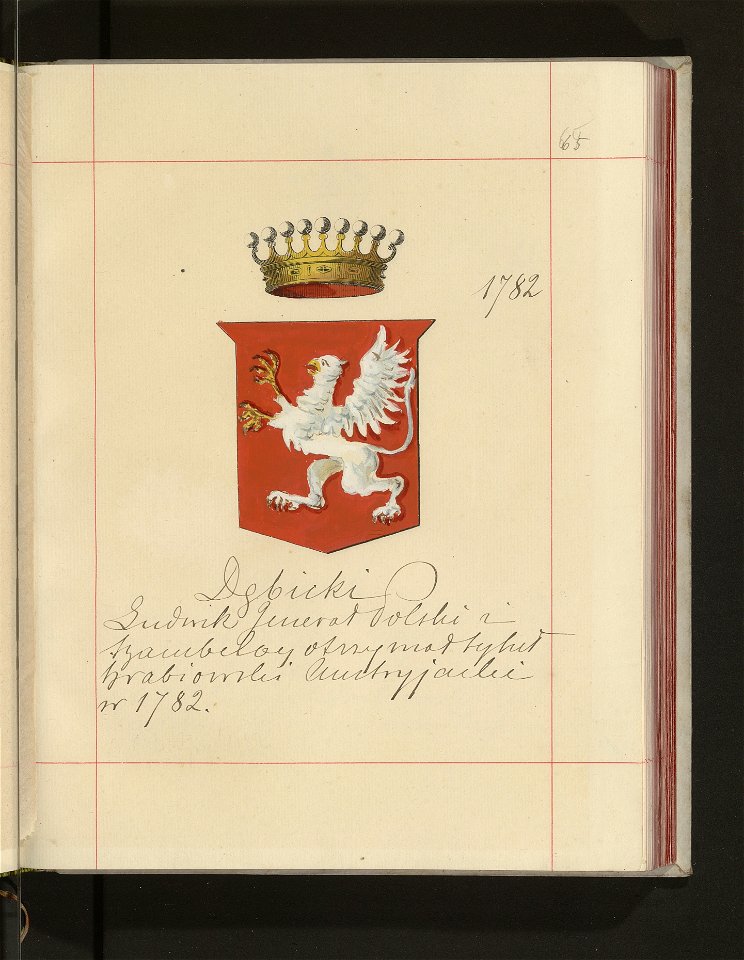 65
1782
Dębicki
Ludwik Generał Polski i
szambelan otrzymał tytuł
hrabiowski Austryjacki
w 1782.